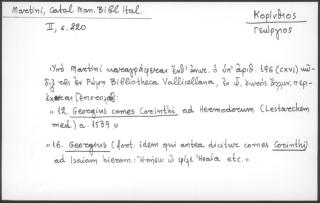 Martini, Catal Man. Bibl Ital.
II, σ. 220
Κορίνθιος
Γεώργιος
Ὑπὸ Martini καταγράφεται ἐνθ' ἀνωτ. ὁ ὑπ' ἀριθ. 196 (CXVI) κώ-
διξ τῆς ἐν Ρώμῃ Bibliotheca Vallicellana, ἐν ᾧ, ἐκτὸς ἄλλων, περι-
έχεται
" 12. Georgius comes Corinthi ad Hermodorum (Lestarchem
med.) a. 1539 »
" 16. Georgius (fort. idem qui antea dicitur comes Corinthi)
ad Isaiam hierom.: ὦ φίλε Ἡσαΐα etc. »